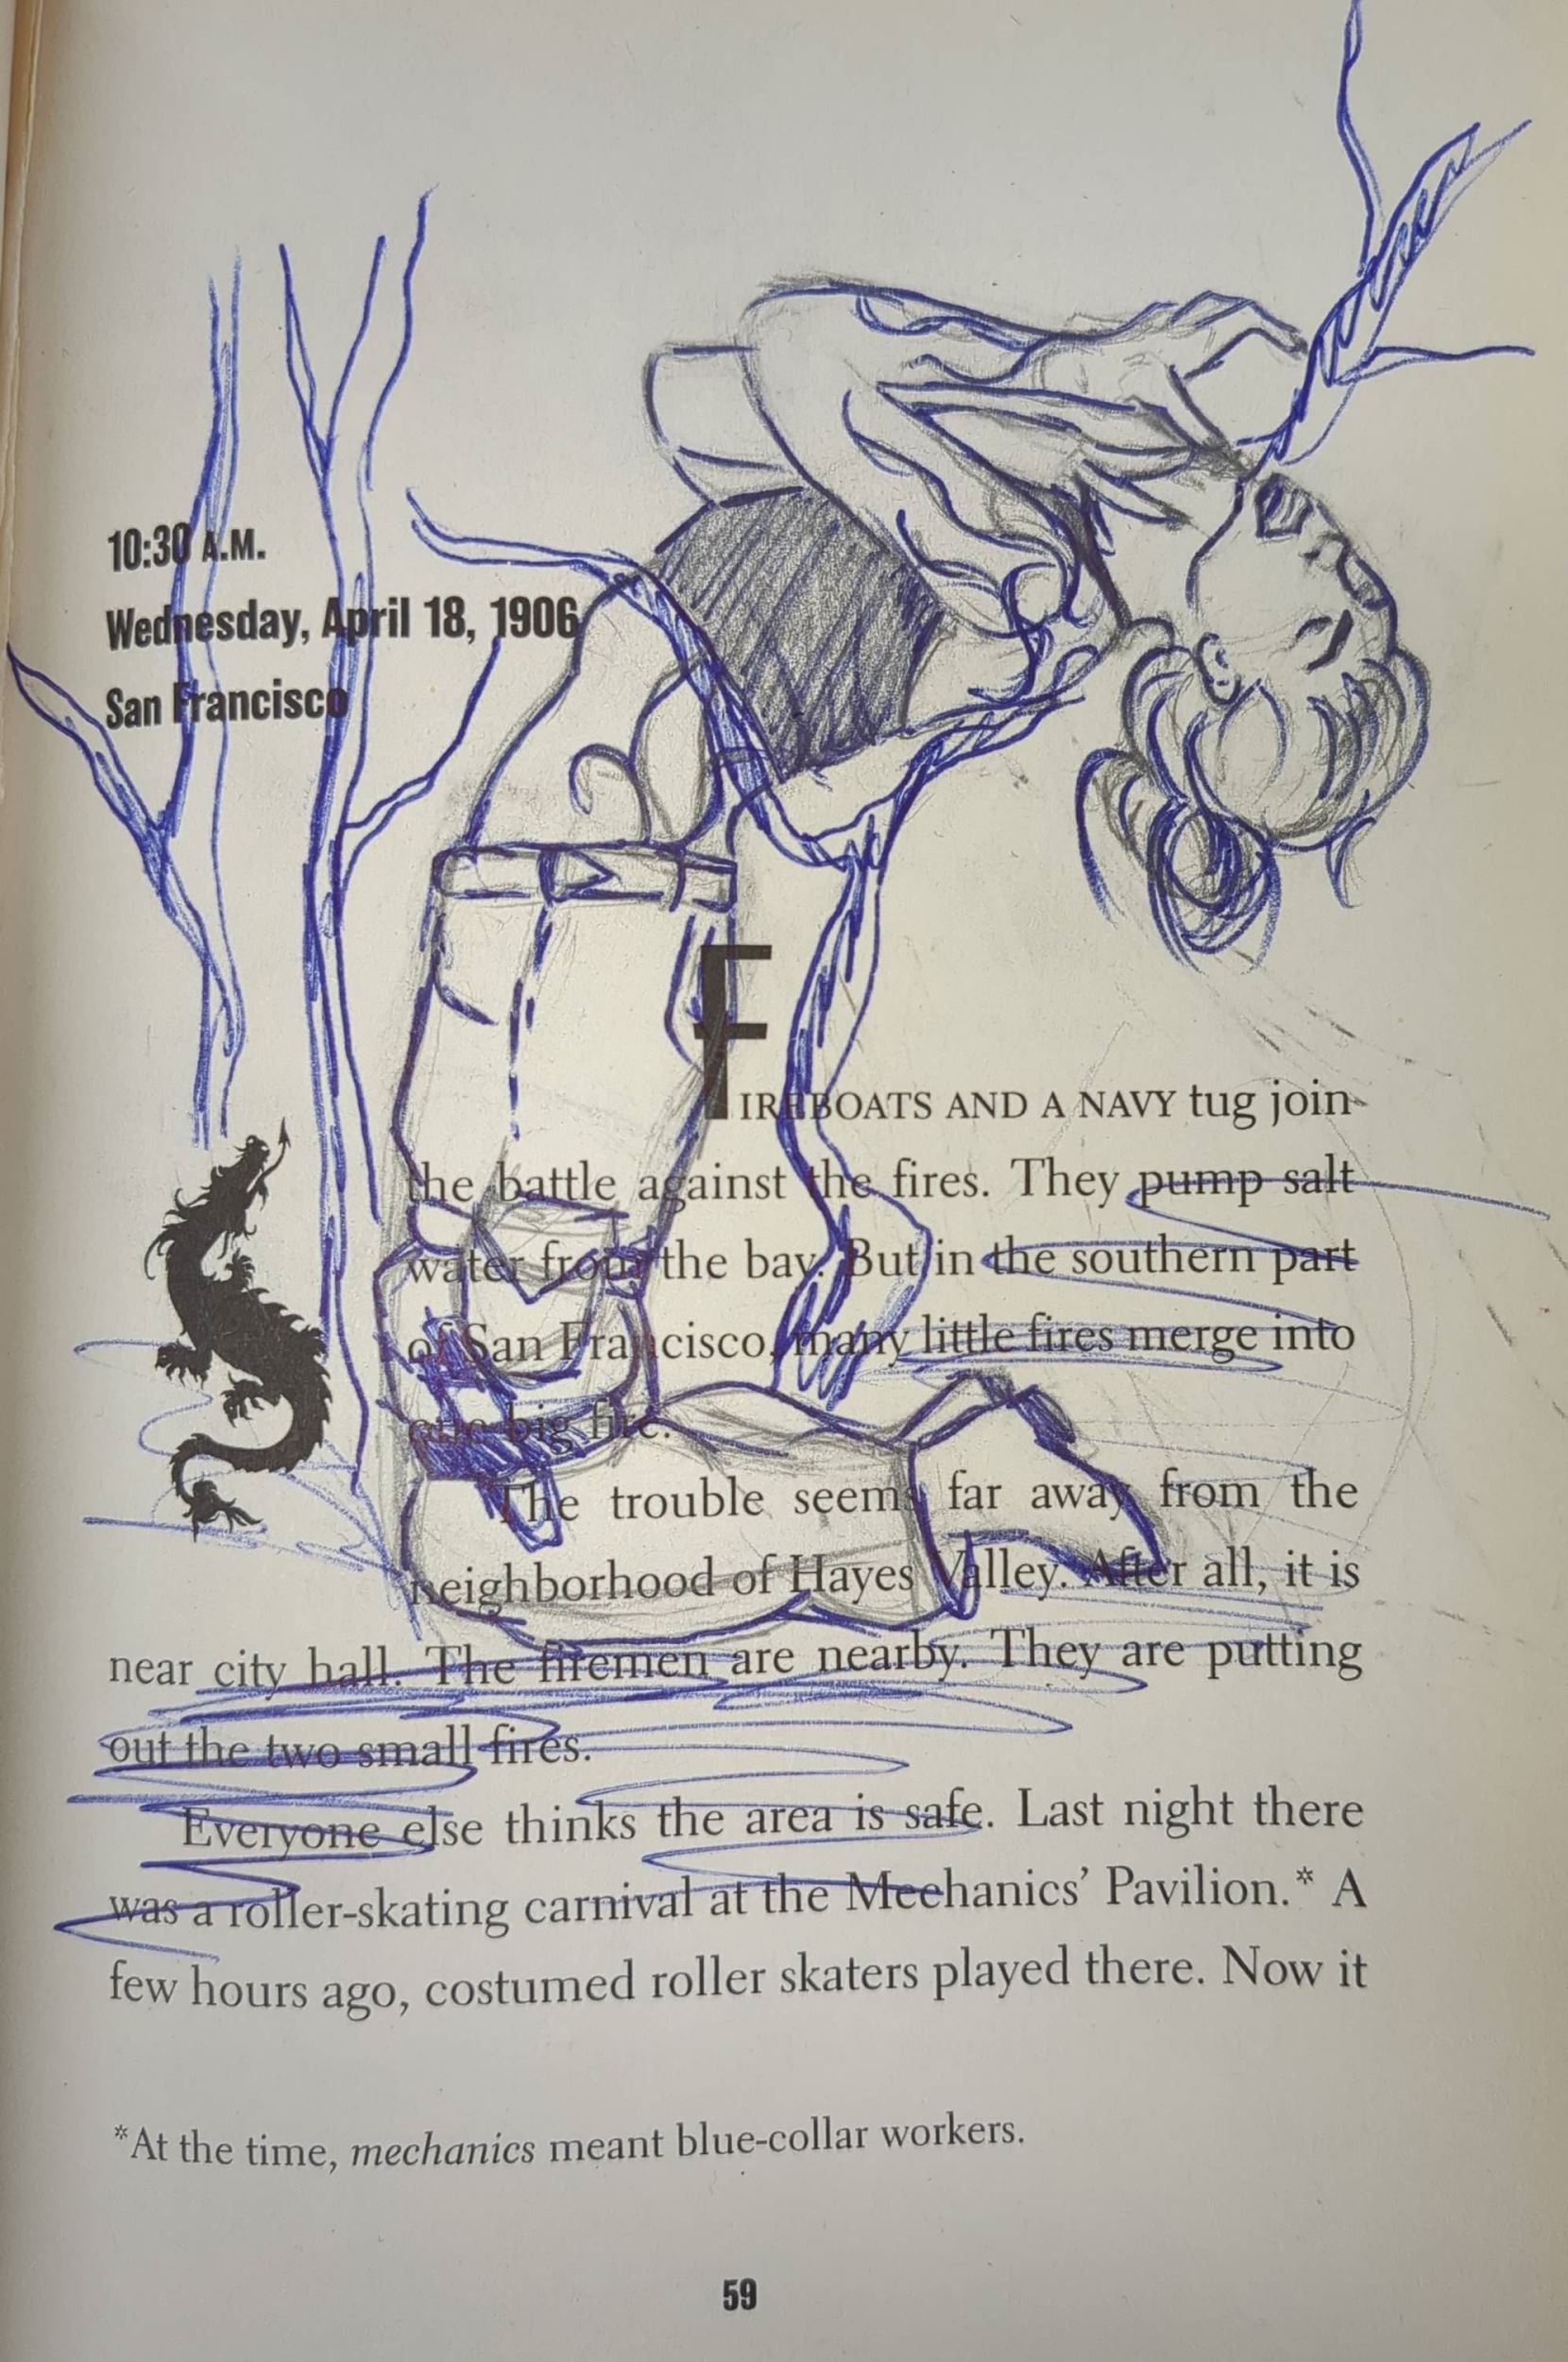 10:30 A.M.
Wednesday, April 18, 1906
San Francisco
FIREBOATS AND A NAVY tug join
the battle against the fires. They pump salt
water from the bay. But in the southern part
of San Francisco, many little fires merge into
one big fire.
The trouble seems far away from the
neighborhood of Hayes Valley. After all, it is
near city hall. The firemen are nearby. They are putting
out the two small fires.
Everyone else thinks the area is safe. Last night there
was a roller-skating carnival at the Mechanics’ Pavilion.* A
few hours ago, costumed roller skaters played there. Now it
*At the time, mechanics meant blue-collar workers.
59